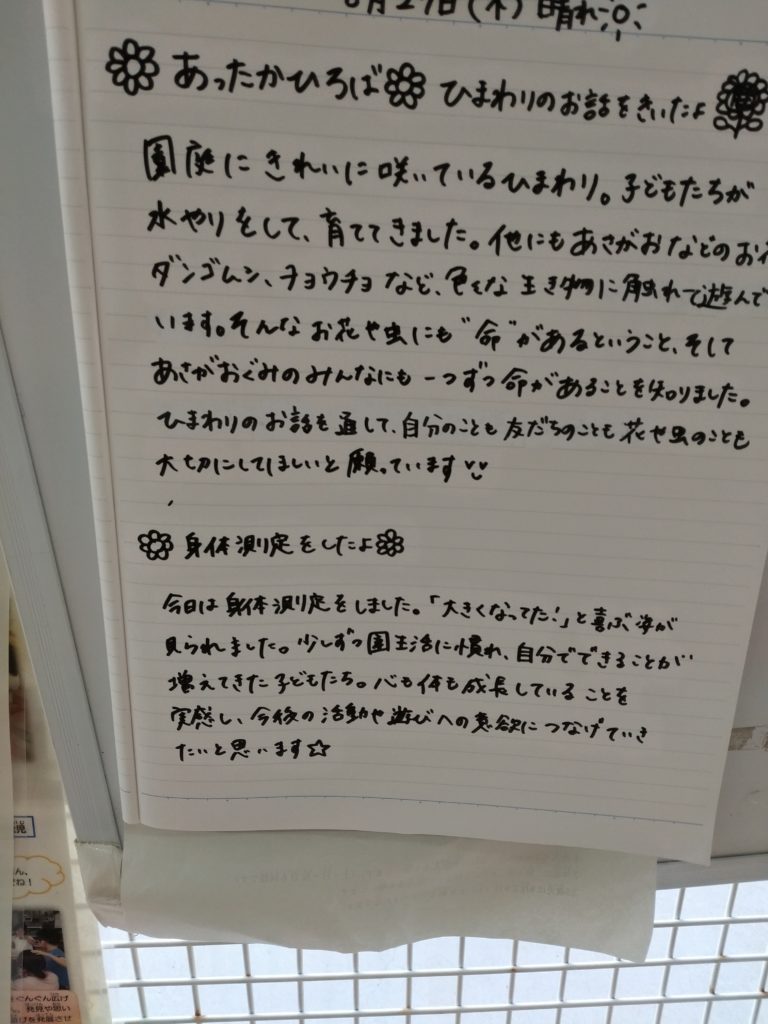 6月27日(木)晴れ
あったかひろば ひまわりのお話をきいたよ
園庭にきれいに咲いているひまわり。子どもたちが
水やりをして、育ててきました。他にもあさがおなどのお花
ダンゴムシ、チョウチョなど、色々な生き物に触れて遊んで
います。そんなお花や虫にも"命"があるということ、そして
あさがおぐみのみんなにも一つずつ命があることを知りました。
ひまわりのお話を通して、自分のことも友だちのことも花や虫のことも
大切にしてほしいと願っています
身体測定をしたよ
今日は身体測定をしました。「大きくなってた!」と喜ぶ姿が
見られました。少しずつ園生活に慣れ、自分でできることが
増えてきた子どもたち。心も体も成長していることを
実感し、今後の活動や遊びへの意欲につなげていき
たいと思います☆
ん、
ね!
ぐんぐん広げ
、発見や思い
けを発展させ